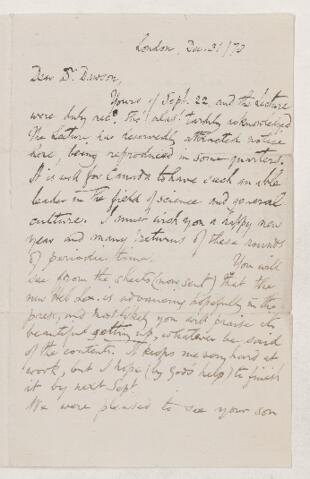 London, Dec. 31/70
Dear Dr. Dawson,
Yours of Sept. 22 and the Lecture
were duly recd. tho' alas! tardily acknowledged
The Lecture has deservedly attracted notice
here, being reproduced in some quarters.
It is well for Canada to have such an able
leader in the field of science and general
culture. I must wish you a happy new
year and many returns of these rounds
of periodic time. You will
see from the sheets (now sent) that the
new Heb. Lex. is advancing hopefully in the
press, and most likely you will praise its
beautiful getting up, whatever be said
of the contents. It keeps me very hard at
work, but I hope (by God's help) to finish
it by next Sept.
We were pleased to see your son